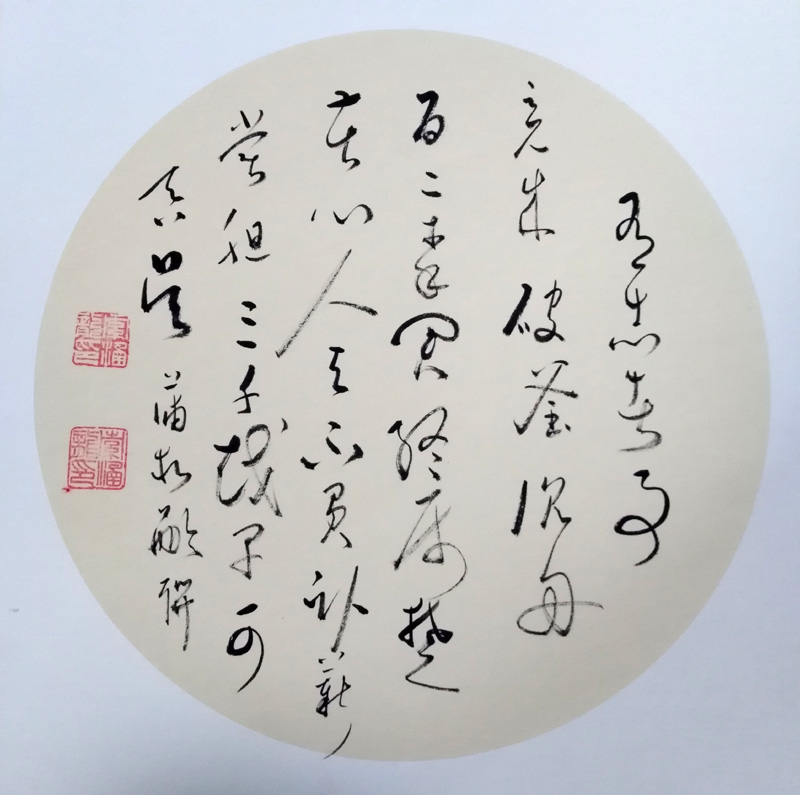 有志者事
竟成破釜沉舟
百二秦关终属楚
苦心人天不负卧薪
尝胆三千越甲可
吞吴 蒲松龄联